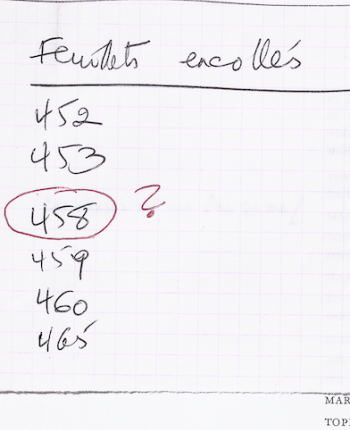 Feuillets encollés
452
453
458 ?
459
460
465
MAR
TOP